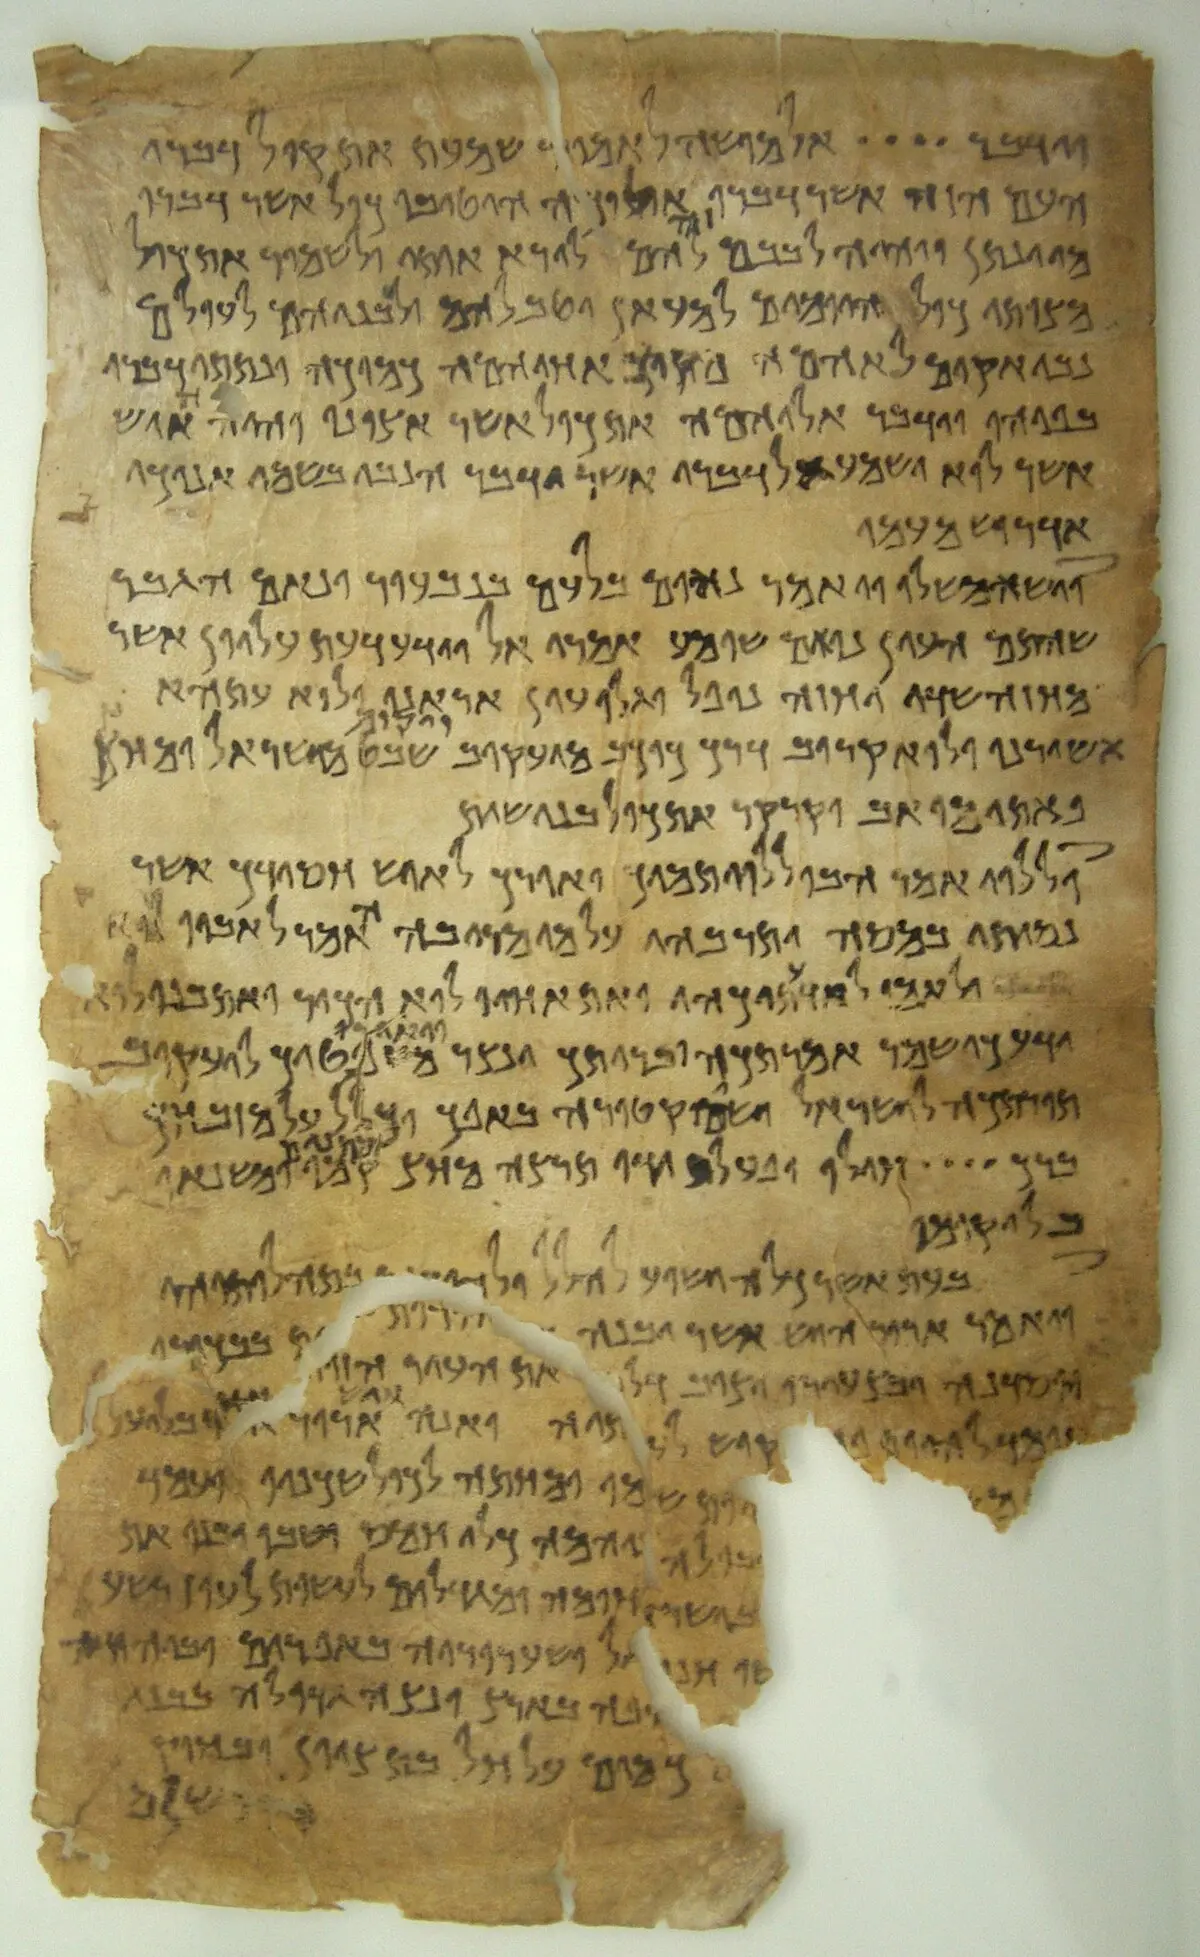 וידבר •••• אל מושה לאמור שמעת את קול דברי
העם הזה אשר דברו אליכה היטיבו כול אשר דברו
מי ינתן ויהיה לבבם זה להם לירא אותי ולשמור את כול
מצותי כול היומים למעאן יטב להם ולבניהם לעולם
נבי אקים לאהמה מקרב אחיהמה כמוכה ונתתי דברי
בפיהו וידבר אליהמה את כול אשר אצונו והיה האיש
אשר לוא ישמע אל דברי אשר ידבר הנבי בשמי אנוכי
אדרוש מעמו
וישא משלו ויאמר נאום בלעם בנבעור ונאם הגבר
שהתם העין נואם שומע אמרי אל וידע דעת עליון אשר
מחזה שדי יחזה נופל וגלו עין אראנו ולוא עתהא
אשורנו ולוא קרוב דרך כוכב מיעקוב ויקום שבט מישראל ומחץ
פאתי מואב וקרקר את כול בני שית
וללוי אמר הבו ללוי תמיך ואורך לאיש חסידך אשר
נסיתו במסה ותרבהו על מי מריבה האמר לאביו לוא
ולאמו לוא ידעתיכהו ואת אחיו לוא הכיר ואת בנו לוא
ידע כי שמר אמרתכה ובריתך ינצר ויאירו משפטיך ליעקוב
תורתכה לישראל ישים קטורה באפך וכליל על מזבחך
ברך •••• חילו ופעל ידו תרצה מחץ מתנים קמו ומשנאו
בל יקומו
בעת אשר כלה ישוע להלל ולהודות בתהלותיהו
ויאמר ארור האיש אשר יבנה את העיר הזות בבכורו
ייסדנה ובצעירו יציב דלתיה והנה איש ארור אחד בליעל
עומד להיות פח יקוש לעמו ומחתה לכול שכניו ועמד
שניהמה כלי חמס ושבו ובנו את
לה חומה ומגדלים לעשות לעוז רשע
בישראל ושערוריה באפרים וביהודה
חנופה בארץ ונצה גדולה בבני
כמים על חל בת ציון ובחוק
ירושלם